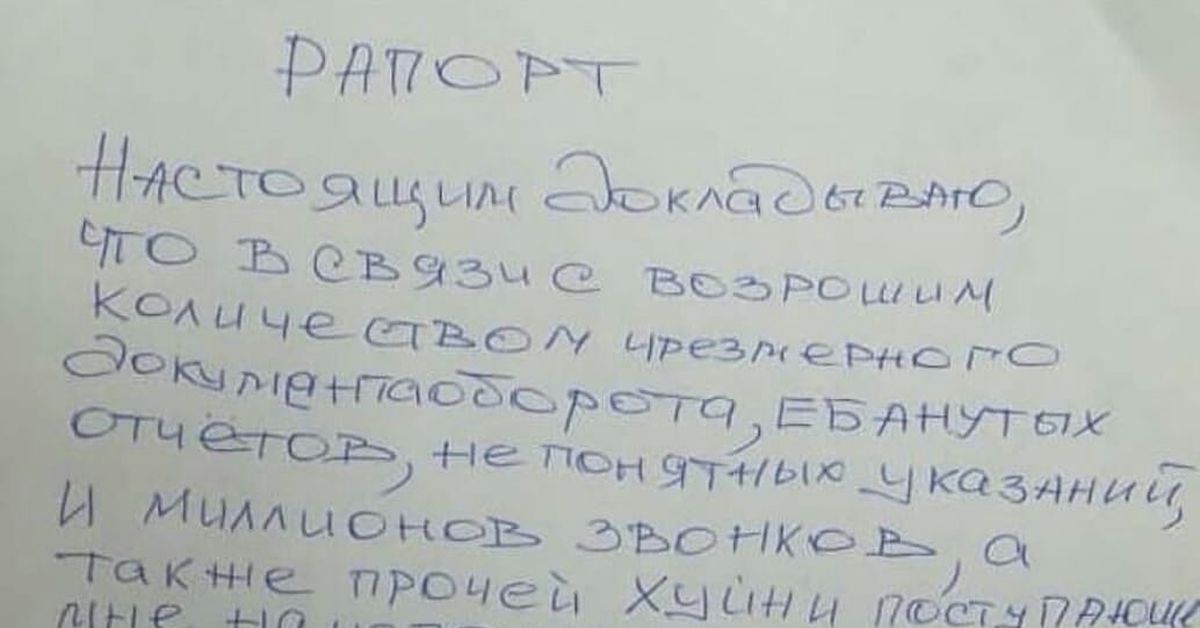 РАПОРТ
Настоящим докладываю,
что в связи с возрошим
количеством чрезмерного
документаоборота, ЕБАНУТЫХ
отчётов, не понятных указаний,
и миллионов звонков, а
также прочей хуйни поступающи
мне на